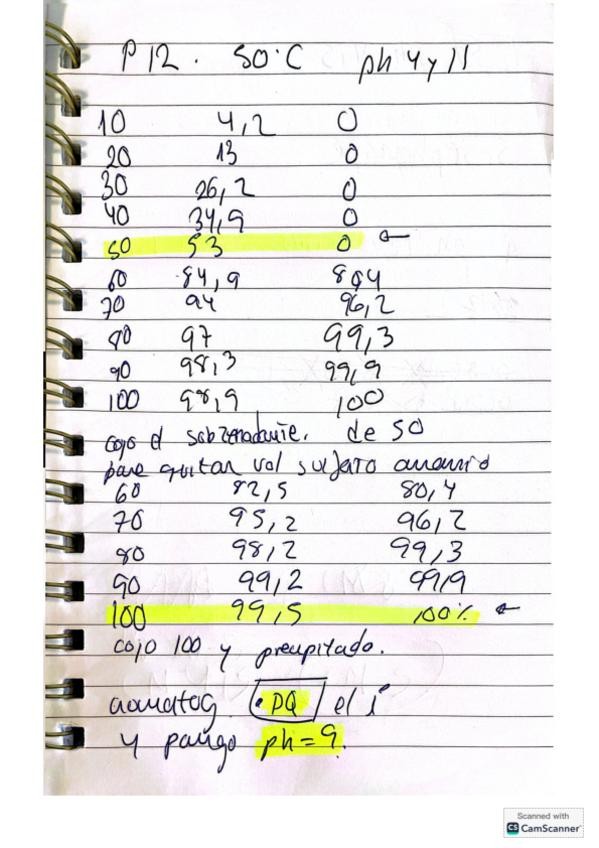 P12. 50°C ph 4 y 11
10 4,2 0
20 13 0
30 26,2 0
40 34,9 0
50 53 0 ←
60 84,9 80,4
70 94 96,2
80 97 99,3
90 98,3 99,9
100 98,9 100
cojo el sobrenadante. de 50
para quitar vol sulfato amonio
60 82,5 80,4
70 95,2 96,2
80 98,2 99,3
90 99,2 99,9
100 99,5 100% ←
cojo 100 y precipitado.
PQ el 1
y pongo ph=9.
Scanned with
CS CamScanner